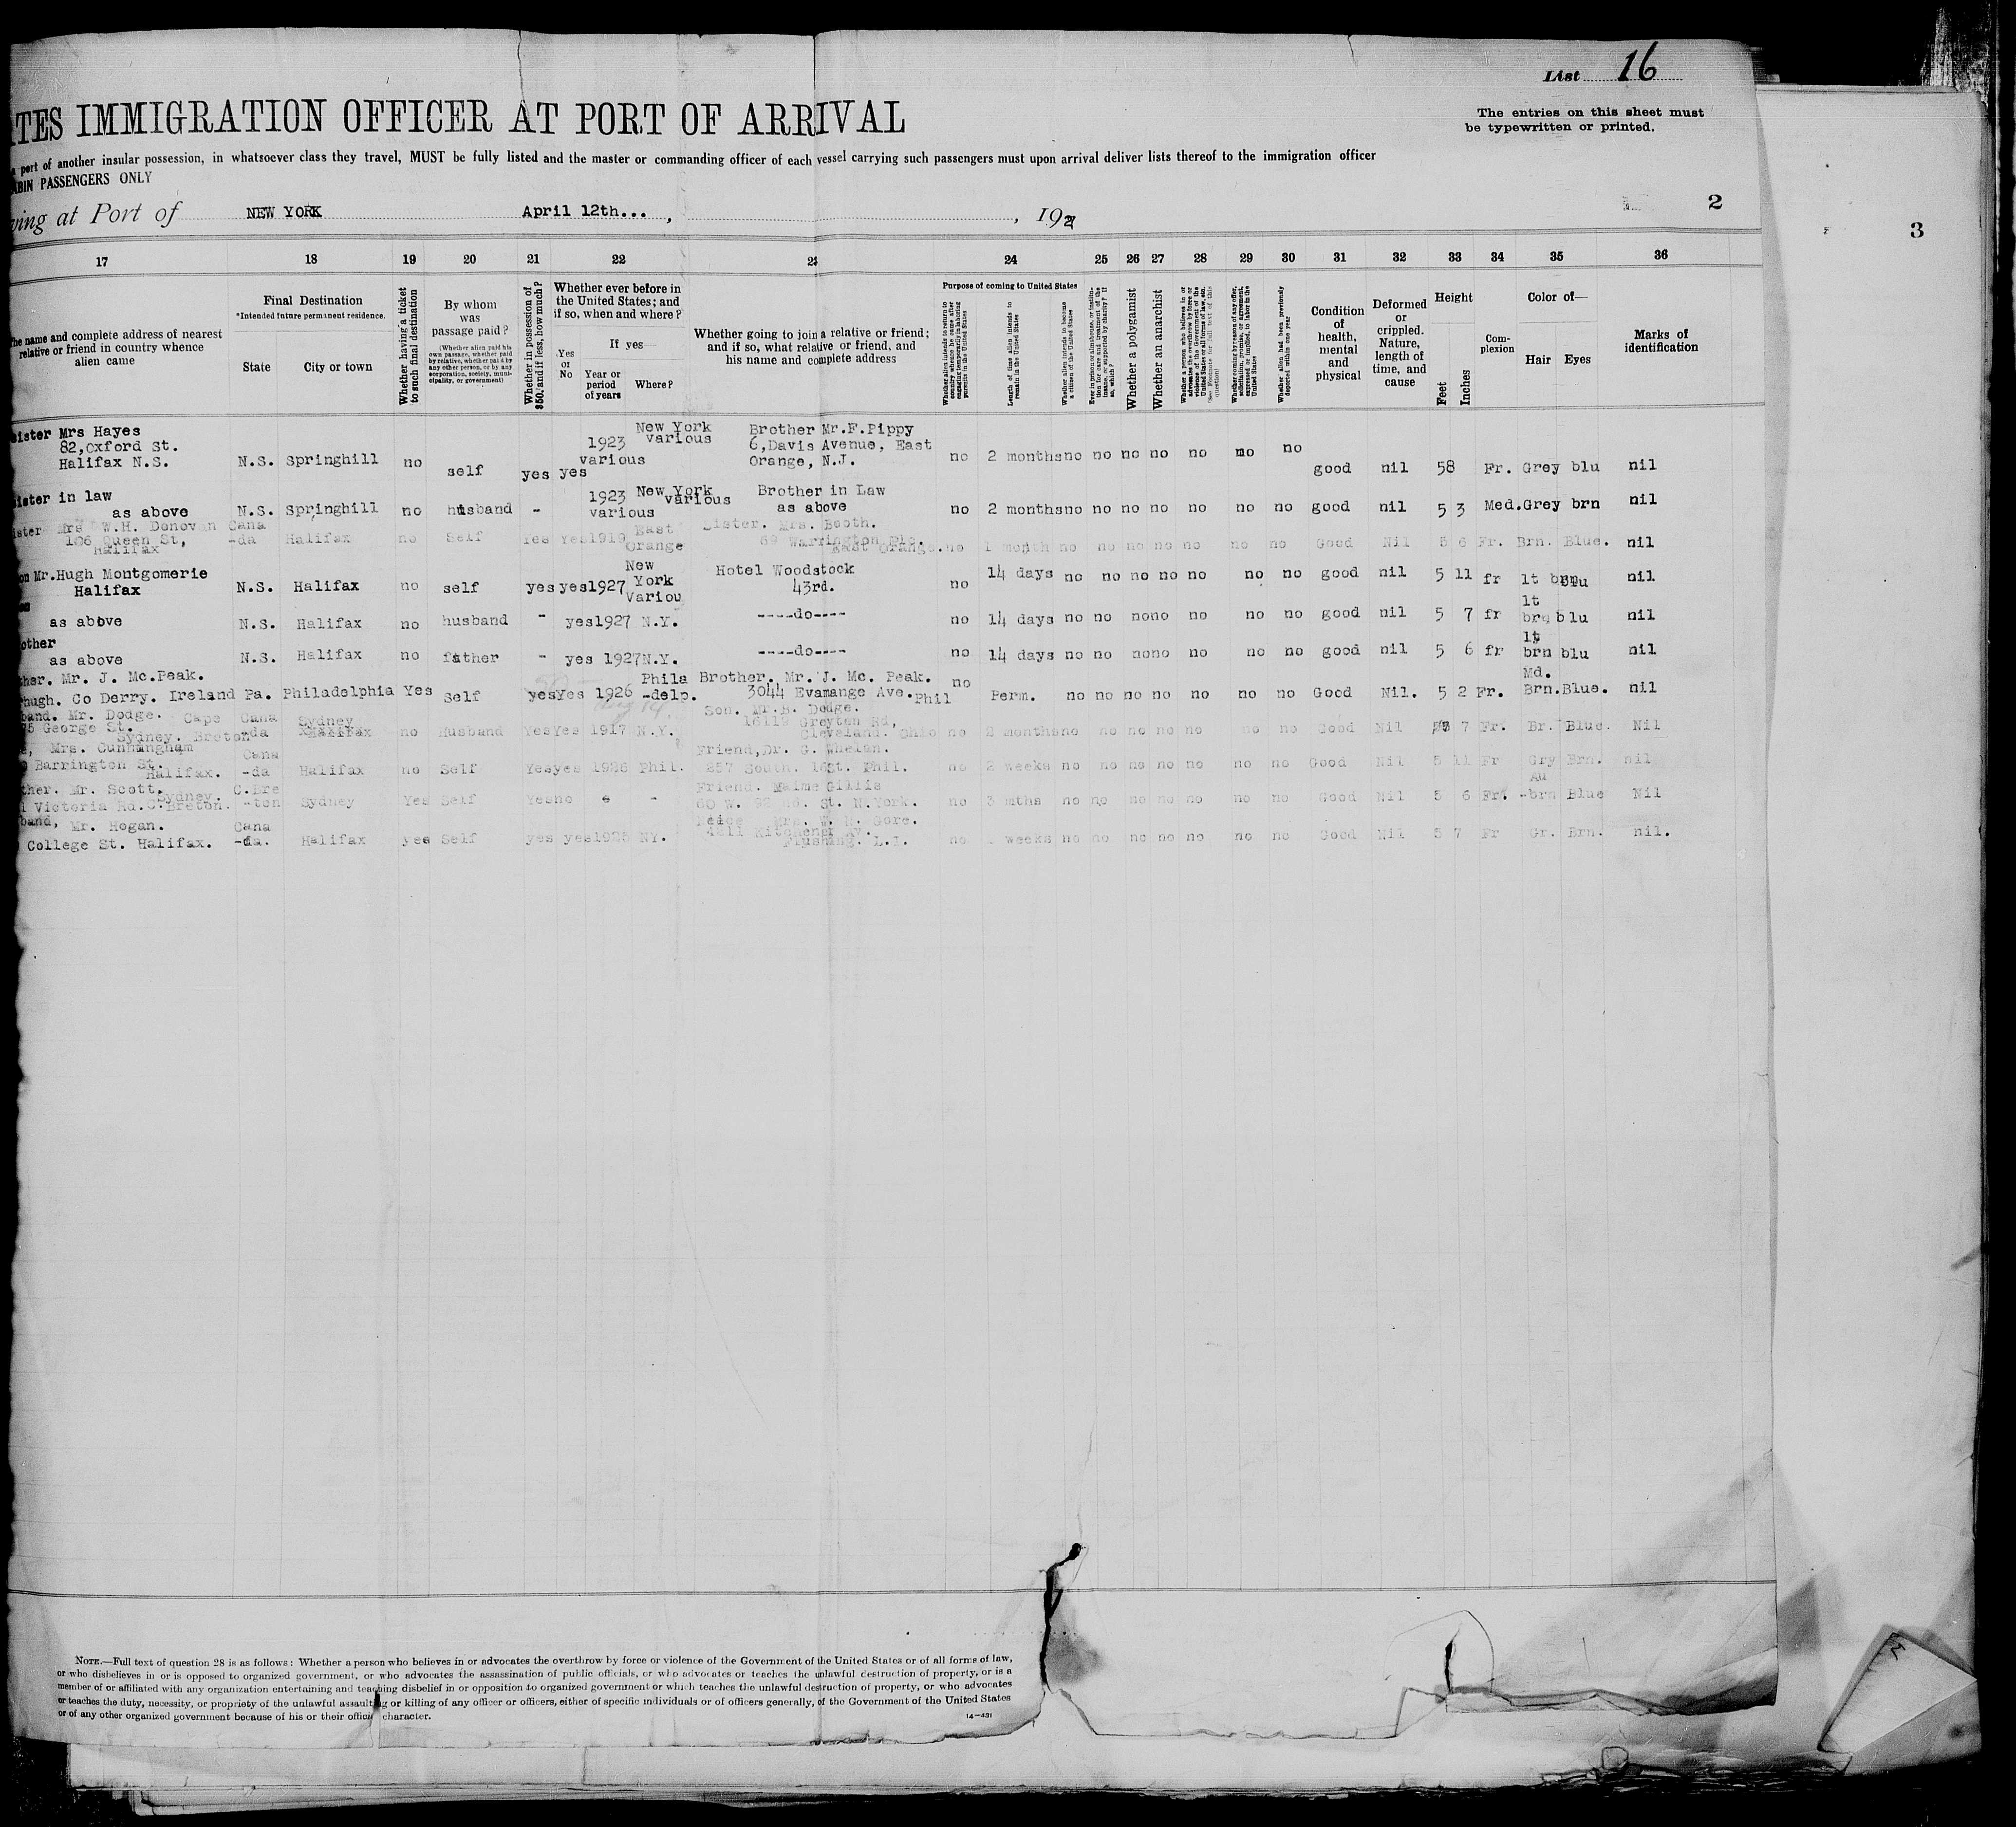 List 16
The entries on this sheet must
be typewritten or printed.
ATES IMMIGRATION OFFICER AT PORT OF ARRIVAL
a port of another insular possession, in whatsoever class they travel, MUST be fully listed and the master or commanding officer of each vessel carrying such passengers must upon arrival deliver lists thereof to the immigration officer
ABIN PASSENGERS ONLY
ving at Port of NEW YORK April 12th... , , 192
2
3
17 18 19 20 21 22 23 24 25 26 27 28 29 30 31 32 33 34 35 36
The name and complete address of nearest
relative or friend in country whence
alien came
Final Destination
*Intended future permanent residence.
State City or town
Whether having a ticket
to such final destination
By whom
was
passage paid?
(Whether alien paid his
own passage, whether paid
by relative, whether paid by
any other person, or by any
corporation, society, muni-
cipality, or government)
Whether in possession of
$50, and if less, how much?
Whether ever before in
the United States; and
if so, when and where?
If yes—
Yes
or
No
Year or
period
of years
Where?
Whether going to join a relative or friend;
and if so, what relative or friend, and
his name and complete address
Purpose of coming to United States
Whether alien intends to return to
country whence he came after
engaging temporarily in laboring
pursuits in the United States
Length of time alien intends to
remain in the United States
Whether alien intends to become
a citizen of the United States
Ever in prison or almshouse, or institu-
tion for care and treatment of the
insane, or supported by charity? If
so, which?
Whether a polygamist
Whether an anarchist
Whether a person who believes in or
advocates the overthrow by force or
violence of the Government of the
United States or all forms of law, etc.
(See Footnote for full text of this
question)
Whether coming by reason of any offer,
solicitation, promise, or agreement,
expressed or implied, to labor in the
United States
Whether alien had been previously
deported within one year
Condition
of
health,
mental
and
physical
Deformed
or
crippled.
Nature,
length of
time, and
cause
Height
Feet
Inches
Com-
plexion
Color of—
Hair Eyes
Marks of
identification
Sister Mrs Hayes New York Brother Mr.F.Pippy
82,Oxford St. 1923 various 6,Davis Avenue, East
Halifax N.S. N.S. Springhill no self yes yes various Orange, N.J. no 2 months no no no no no no no good nil 58 Fr. Grey blu nil
Sister in law 1923 New York Brother in Law
as above N.S. Springhill no husband - various various as above no 2 months no no no no no no no good nil 5 3 Med. Grey brn nil
ister Mrs W.H. Donovan Cana East Sister. Mrs. Booth.
106 Queen St, -da Halifax no Self Yes Yes 1919 Orange 89 Warrington Plc.
Halifax East Orange. no 1 month no no no no no no no Good Nil 5 6 Fr. Brn. Blue. nil
on Mr.Hugh Montgomerie New Hotel Woodstock
Halifax N.S. Halifax no self yes yes 1927 York 43rd. no 14 days no no no no no no no good nil 5 11 fr lt brn Blu nil
Variou
as above N.S. Halifax no husband - yes 1927 N.Y. ----do---- no 14 days no no no no no no no good nil 5 7 fr lt brn blu nil
other
as above N.S. Halifax no father - yes 1927 N.Y. ----do---- no 14 days no no no no no no no good nil 5 6 fr lt brn blu nil
ther. Mr. J. Mc.Peak. Phila Brother. Mr. J. Mc. Peak. no Md.
hugh. Co Derry. Ireland Pa. Philadelphia Yes Self yes Yes 1926 -delp. 3044 Evamange Ave. Phil Perm. no no no no no no no Good Nil. 5 2 Fr. Brn. Blue. nil
band. Mr. Dodge. Cape Cana Sydney Son. Mr.B. Dodge.
75 George St. 16119 Greyton Rd,
Sydney. Breton -da Halifax no Husband Yes Yes 1917 N.Y. Cleveland. Ohio no 2 months no no no no no no no Good Nil 5 7 Fr. Br. Blue. Nil
e, Mrs. Cunningham Cana Friend, Dr. G. Whelan.
Barrington St.
Halifax. -da Halifax no Self Yes yes 1926 Phil. 257 South. 16St. Phil. no 2 weeks no no no no no no no Good Nil 5 11 Fr Gry Brn. nil
ther. Mr. Scott. C.Bre Friend. Malme Gillis Au
Victoria Rd. Sydney. C.Breton. -ton Sydney Yes Self Yes no - 60 W. St. N.York. no 3 mths no no no no no no no Good Nil 5 6 Fr. -brn Blue Nil
band, Mr. Hogan. Cana Neice Mrs. W. H. Gore.
4211 Kitchener Av.
College St. Halifax. -da. Halifax yes Self yes yes 1925 NY. Flushing. L.I. no weeks no no no no no no no Good Nil 5 7 Fr Gr. Brn. nil.
NOTE.—Full text of question 28 is as follows: Whether a person who believes in or advocates the overthrow by force or violence of the Government of the United States or of all forms of law,
or who disbelieves in or is opposed to organized government, or who advocates the assassination of public officials, or who advocates or teaches the unlawful destruction of property, or is a
member of or affiliated with any organization entertaining and teaching disbelief in or opposition to organized government or which teaches the unlawful destruction of property, or who advocates
or teaches the duty, necessity, or propriety of the unlawful assaulting or killing of any officer or officers, either of specific individuals or of officers generally, of the Government of the United States
or of any other organized government because of his or their official character.
14—431